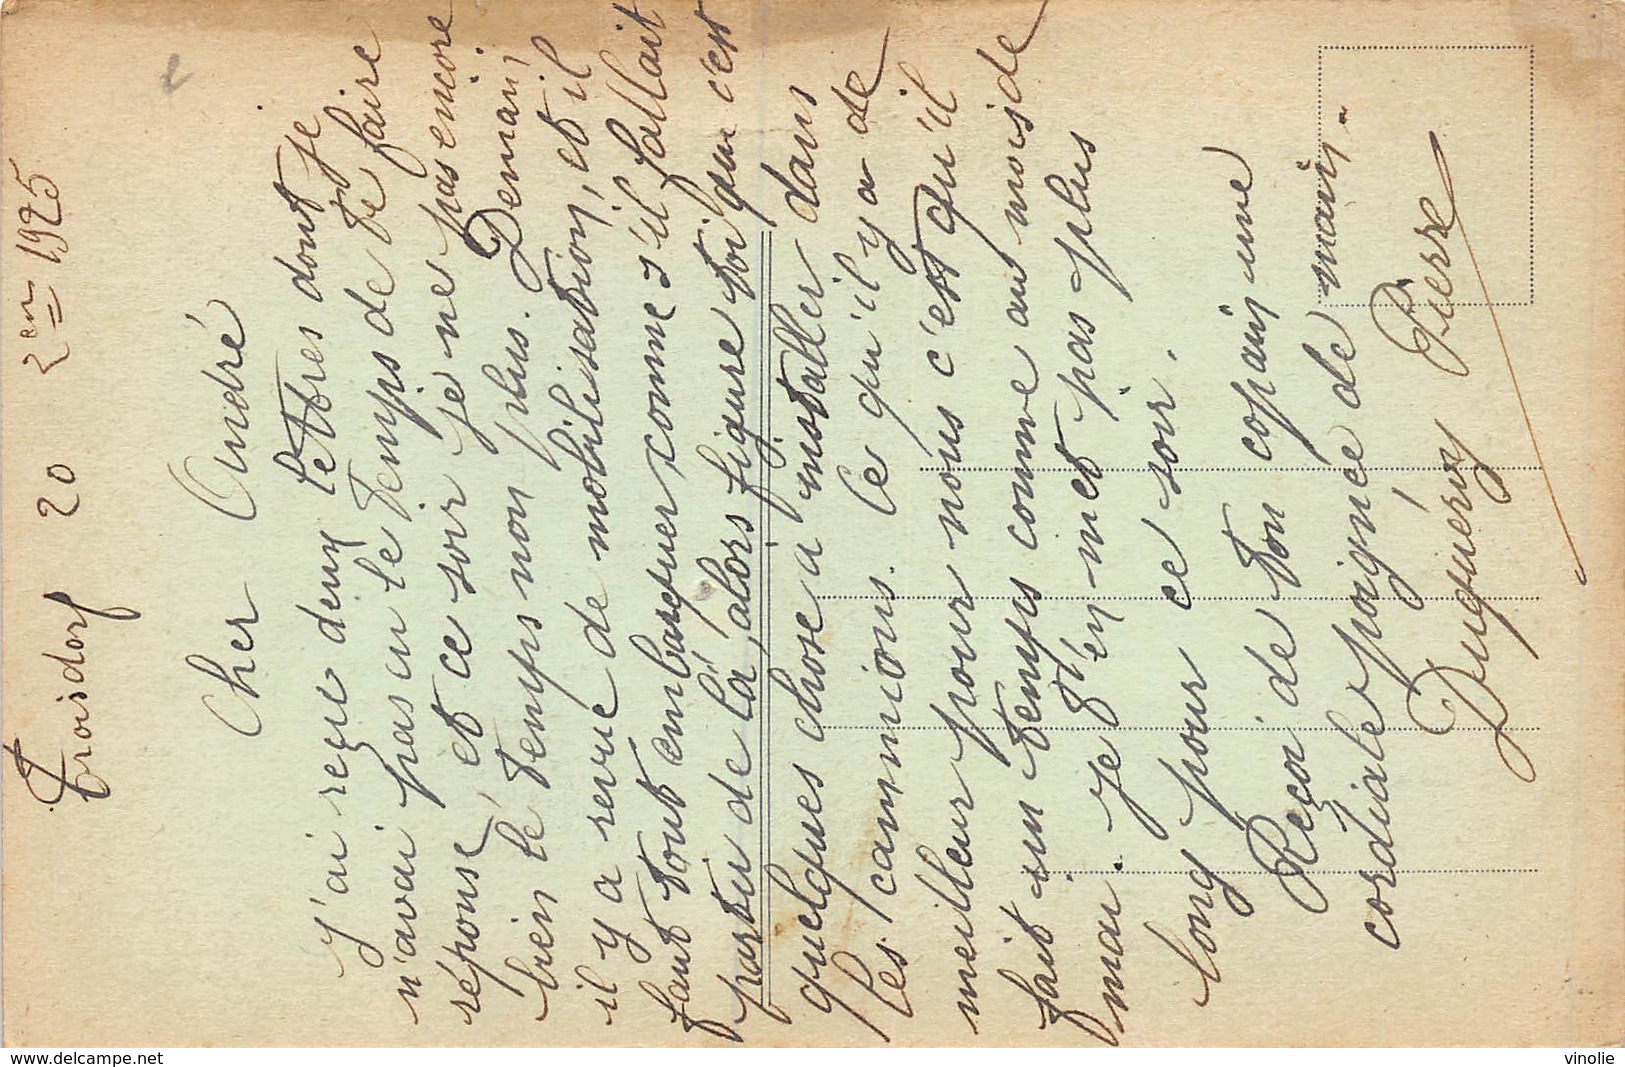 Troisdorf 20 2en 1925
Cher André
J'ai reçu deux lettres dont je
n'avai pas eu le temps de te faire
réponse, et ce soir je ne pas encore
bien le temps non plus. Demain
il y a revue de mobilisation, et il
faut tout embarquer comme s'il fallait
partir de là, alors figure toi que c'est
quelques chose a installer dans
les cammions. Ce qu'il y a de
meilleur pour nous c'est qu'il
fait un temps comme au mois de
mai. Je t'en met pas plus
long pour ce soir.
Reçoi de ton copain une
cordiale poignée de main.
Duquéroy Pierre
www.delcampe.net
vinolie